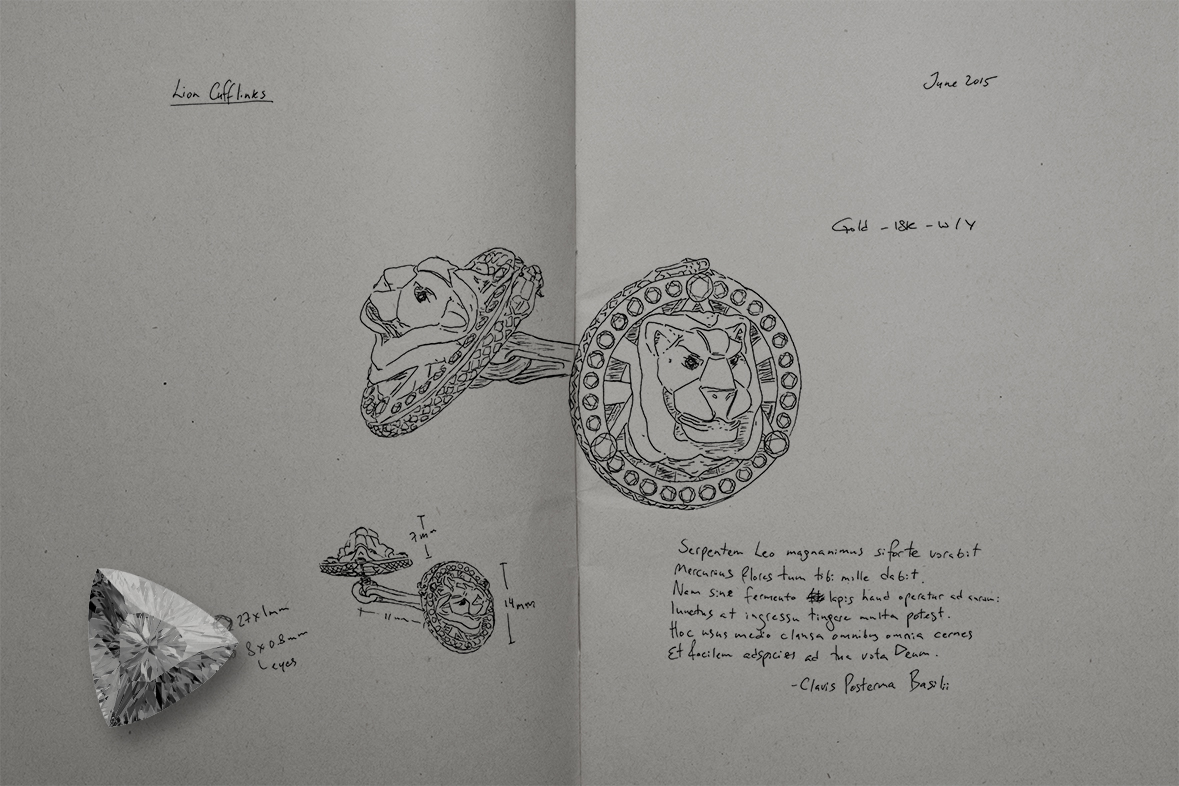 Lion Cufflinks
June 2015
Gold - 18K - W/Y
7mm
14mm
11mm
27x1mm
8x0.8mm
eyes
Serpentem Leo magnanimus si forte vorabit
Mercurius flores tum tibi mille dabit.
Nam sine fermento lapis haud operatur ad aurum:
Iunctus at ingressu tingere multa potest.
Hoc usus medio clausa omnibus omnia cernes
Et facilem adspicies ad tua vota Deum.
-Clavis Posterna Basilii